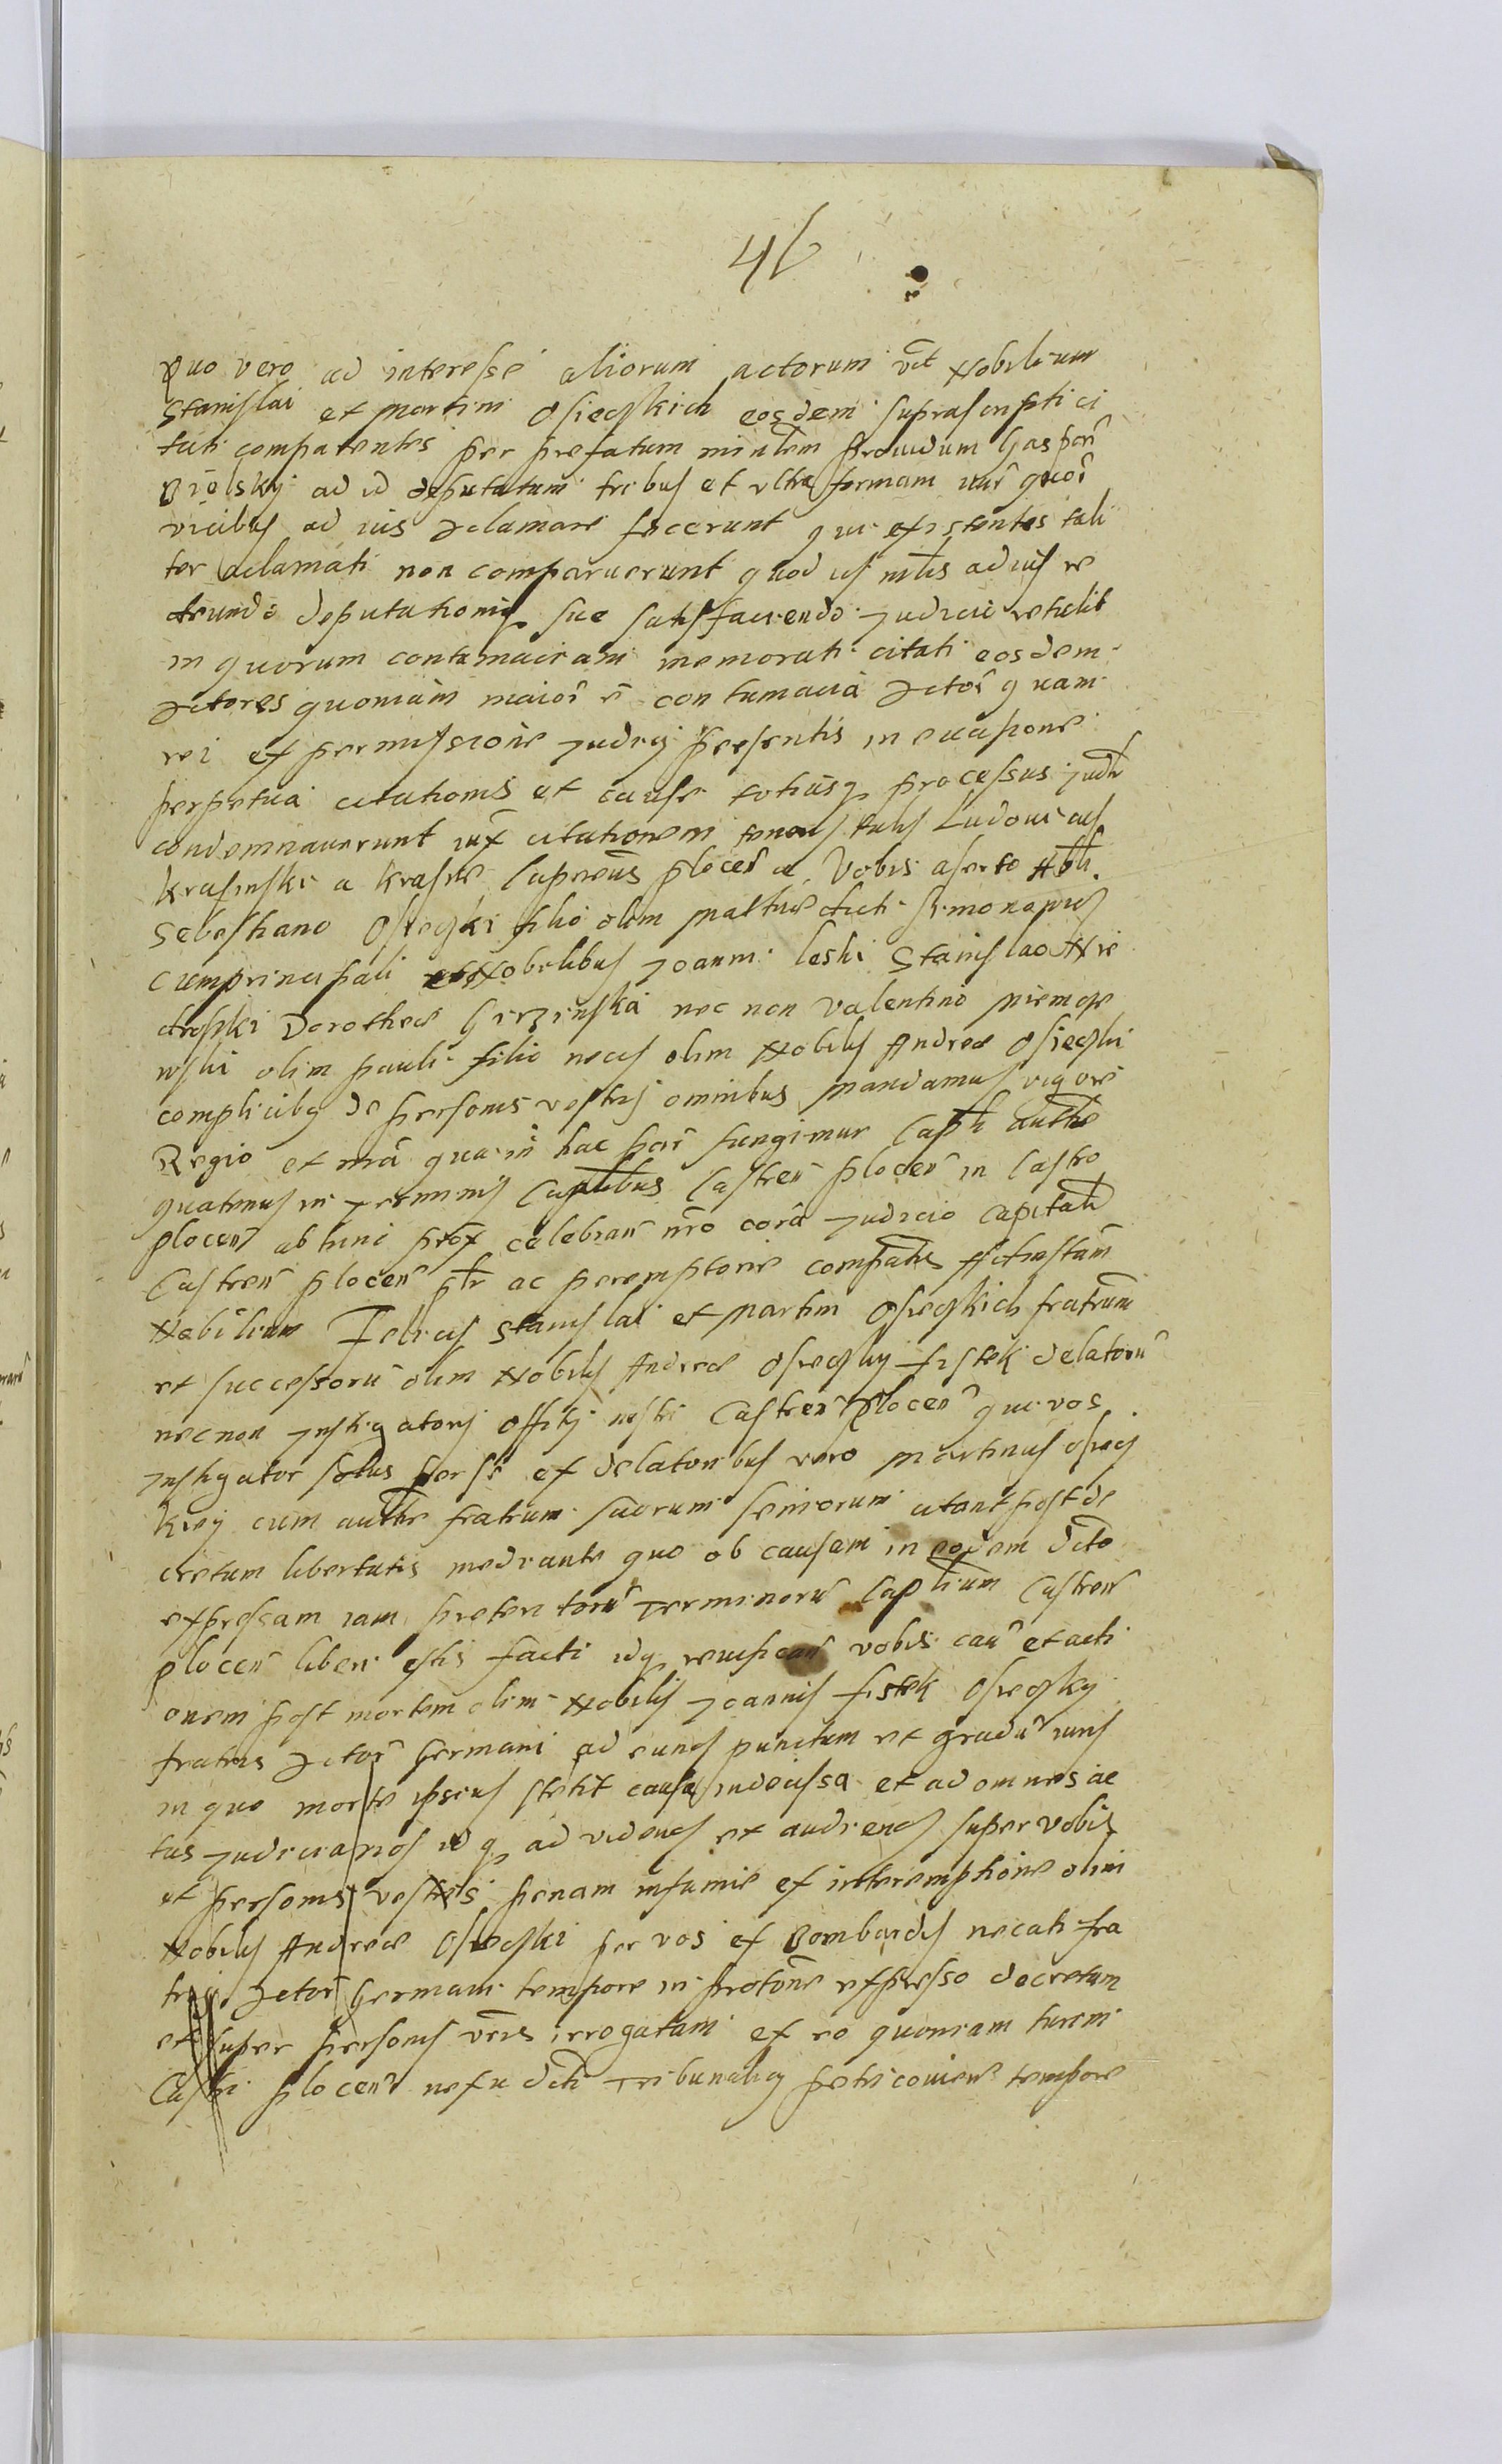 46
quo vero ad interesse aliorum actorum vt Nobilium
Stanislai et Martini Osieczkich eosdem suprascripti ci
tati comparentes per prefatum minlem providum Gasparu
Bielsky ad id deputatum tribus et vltra formam iur quor
vicibus ad ius acclamare fecerunt qui existentes tali
ter acclamati non comparuerunt quod is mlis ad ius re
deputationis sue satisfaciendo Judicio retulit
in quorum contumaciam memorati citati eosdem
Actores quoniam maior e contumacia Actor quam
rei ex permissione Judicij presentis in euasione
perpetua citationis et cause totiusq processus Judli
condemnauerunt iux citationem tenoris talis Ludouicus
Krasinski a Krasne Capneus plocen Vobis aserto Nbli
Sebastiano Osieczki filio olim Mathie dicti
cum principali et Nobilibus Joanni Leski Stanislao Nie
Dorothea nec non Valentino Niemoie
wski olim Pauli filio necis olim Nobilis Andree Osieczki
complicibq de personis vestris omnibus mandamus vigore
Regio et mea qua in hac par fungimur Capli authe
quatenus in Terminis Caplibus Castren plocen in Castro
plocen ab hinc prox celebran nro cora Judicio Capitali
Castren plocen plr ac peremptorie compatis Ad instan
Nobilium Felicis Stanislai et Martini Osieczkich fratrum
et successoru olim Nobilis Andree Osieczky fistek delatoru
necnon Instigatoris Offitij nostri Castren Plocen qui vos
Instigator solus per se ex delatoribus vero Martinus Osiecz
kiey cum authe fratrum suorum seniorum citant post de
cretum libertatis mediante quo ob causam in eodem dcto
expressam iam preteritoru Terminoru Caplium Castren
plocen liberi estis facti idq vobis cau et acti
onem post mortem olim Nobilis Joannis fistek Osieczky
fratris Actor Germani ad eund punctum et gradu iuris
in quo morte ipsius stetit causa indecissa et ad omnes ac
tus Judiciarios idq ad vidend et audiend super vobis
et personis vestris penam infamie ex interemptione olim
Nobilis Andree Osieczki per vos ex Bombardis necati fra
tris Actor Germani tempore in protone expresso decretam
et super personis vris irrogatam ex eo quoniam turem
Castri plocen dcti Tribunalis tempore